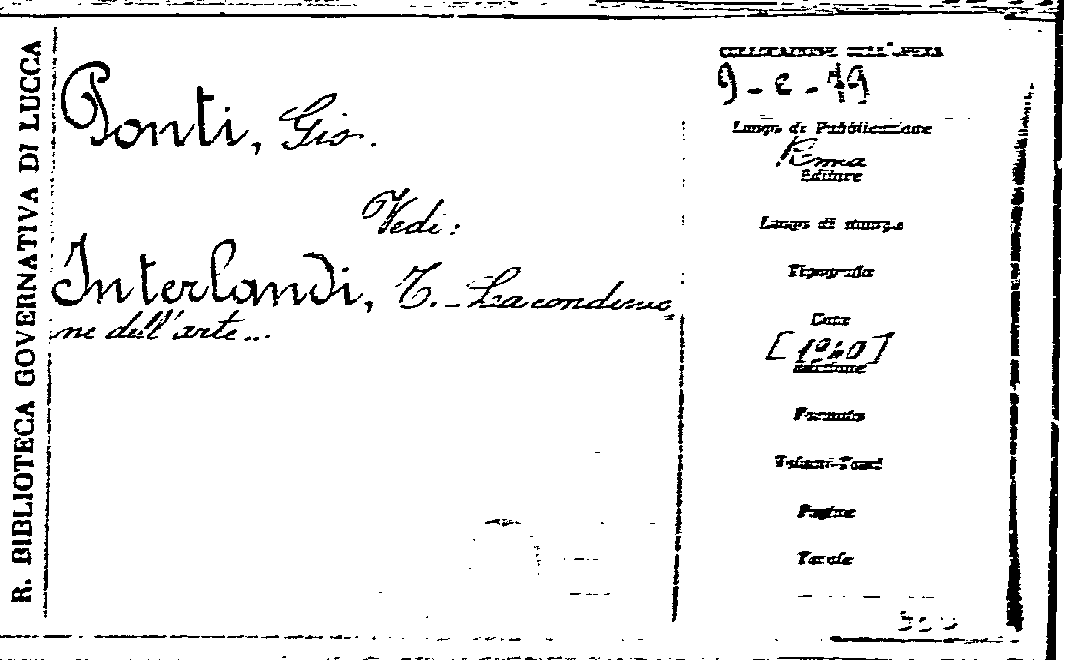 R. BIBLIOTECA GOVERNATIVA DI LUCCA
Ponti, Gio.
Vedi:
Interlandi, T. - La condenna-
ne dell'arte...
COLLOCAZIONE DELL'OPERA
9-c-49
Luogo di Pubblicazione
Roma
Editore
Luogo di stampa
Tipografia
Data
[1940]
Edizione
Formato
Volumi-Tomi
Pagine
Tavole